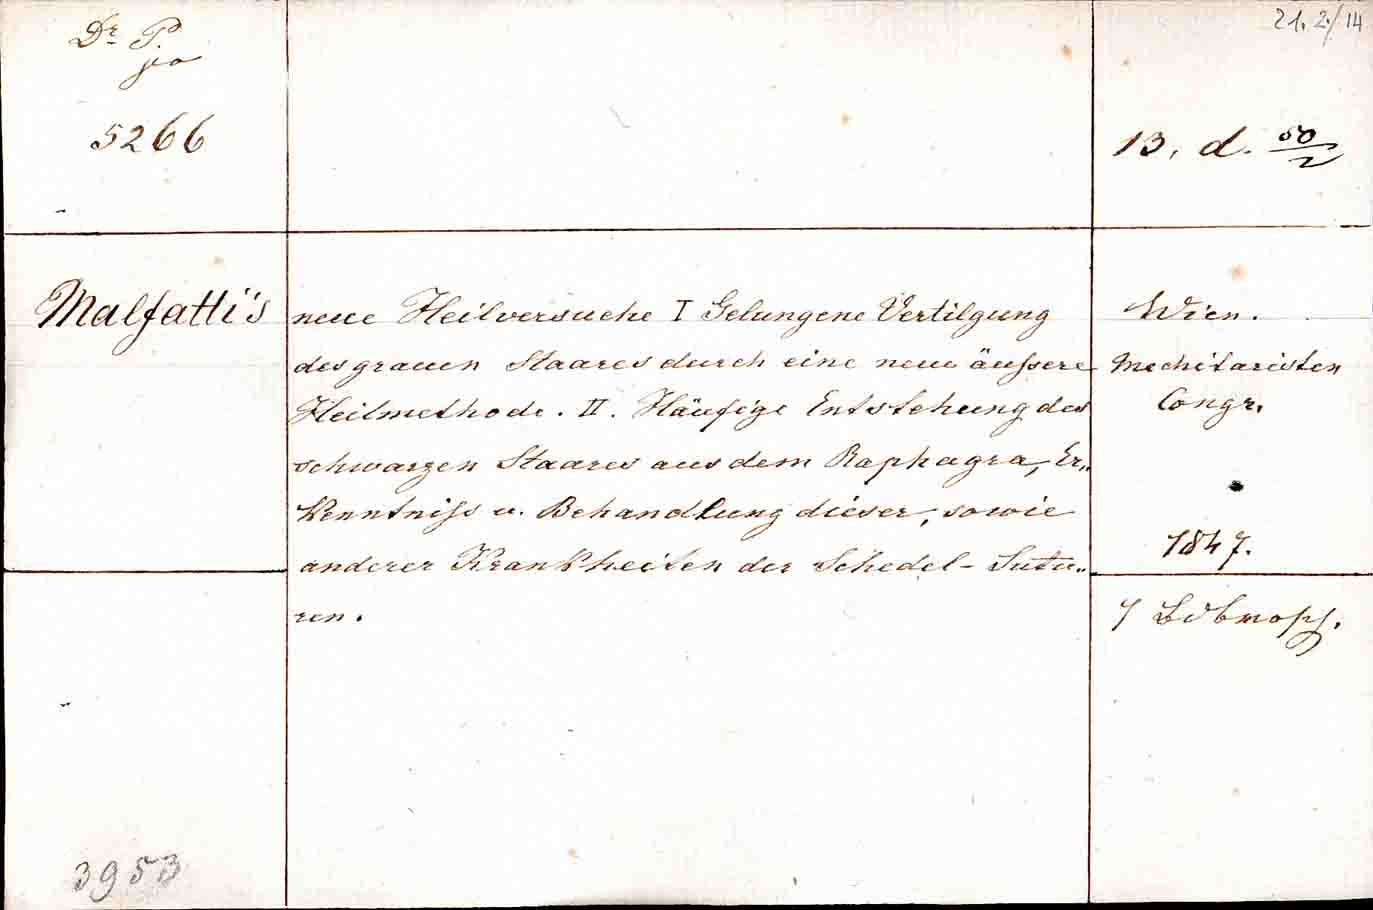 21. 2./14
Dr. P.
5266
13. d. 50/2
Malfatti's
neue Heilversuche I Gelungene Vertilgung
des grauen Staares durch eine neue äußere
Heilmethode. II. Häufige Entstehung des
schwarzen Staares aus dem Raphagra, Er„
kenntniß u. Behandlung dieser, sowie
anderer Krankheiten der Schedel- Sutu„
ren.
Wien.
Mechitaristen
Congr.
1847.
3953